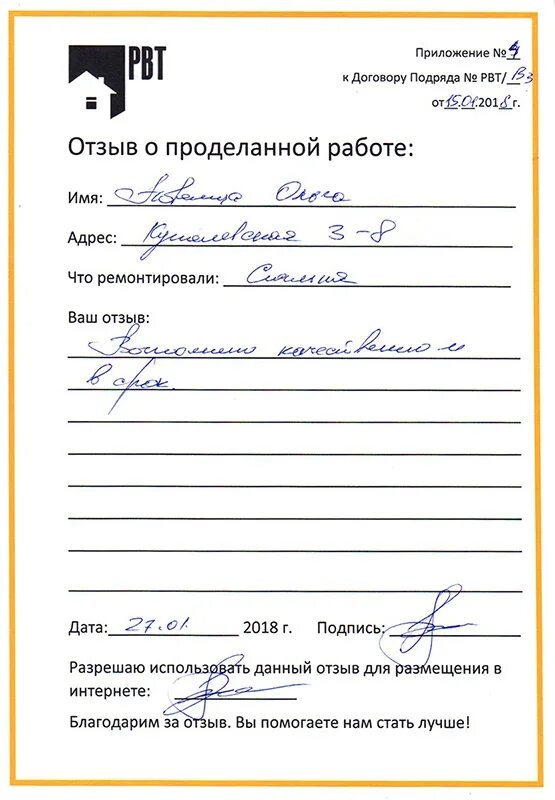 РВТ
Приложение № 4
к Договору Подряда № РВТ/ В3
от 15.01.2018 г.
Отзыв о проделанной работе:
Имя: Ольга
Адрес: 3-8
Что ремонтировали: Спальня
Ваш отзыв:
Выполнено качественно и
в срок.
Дата: 27.01. 2018 г. Подпись:
Разрешаю использовать данный отзыв для размещения в
интернете:
Благодарим за отзыв. Вы помогаете нам стать лучше!